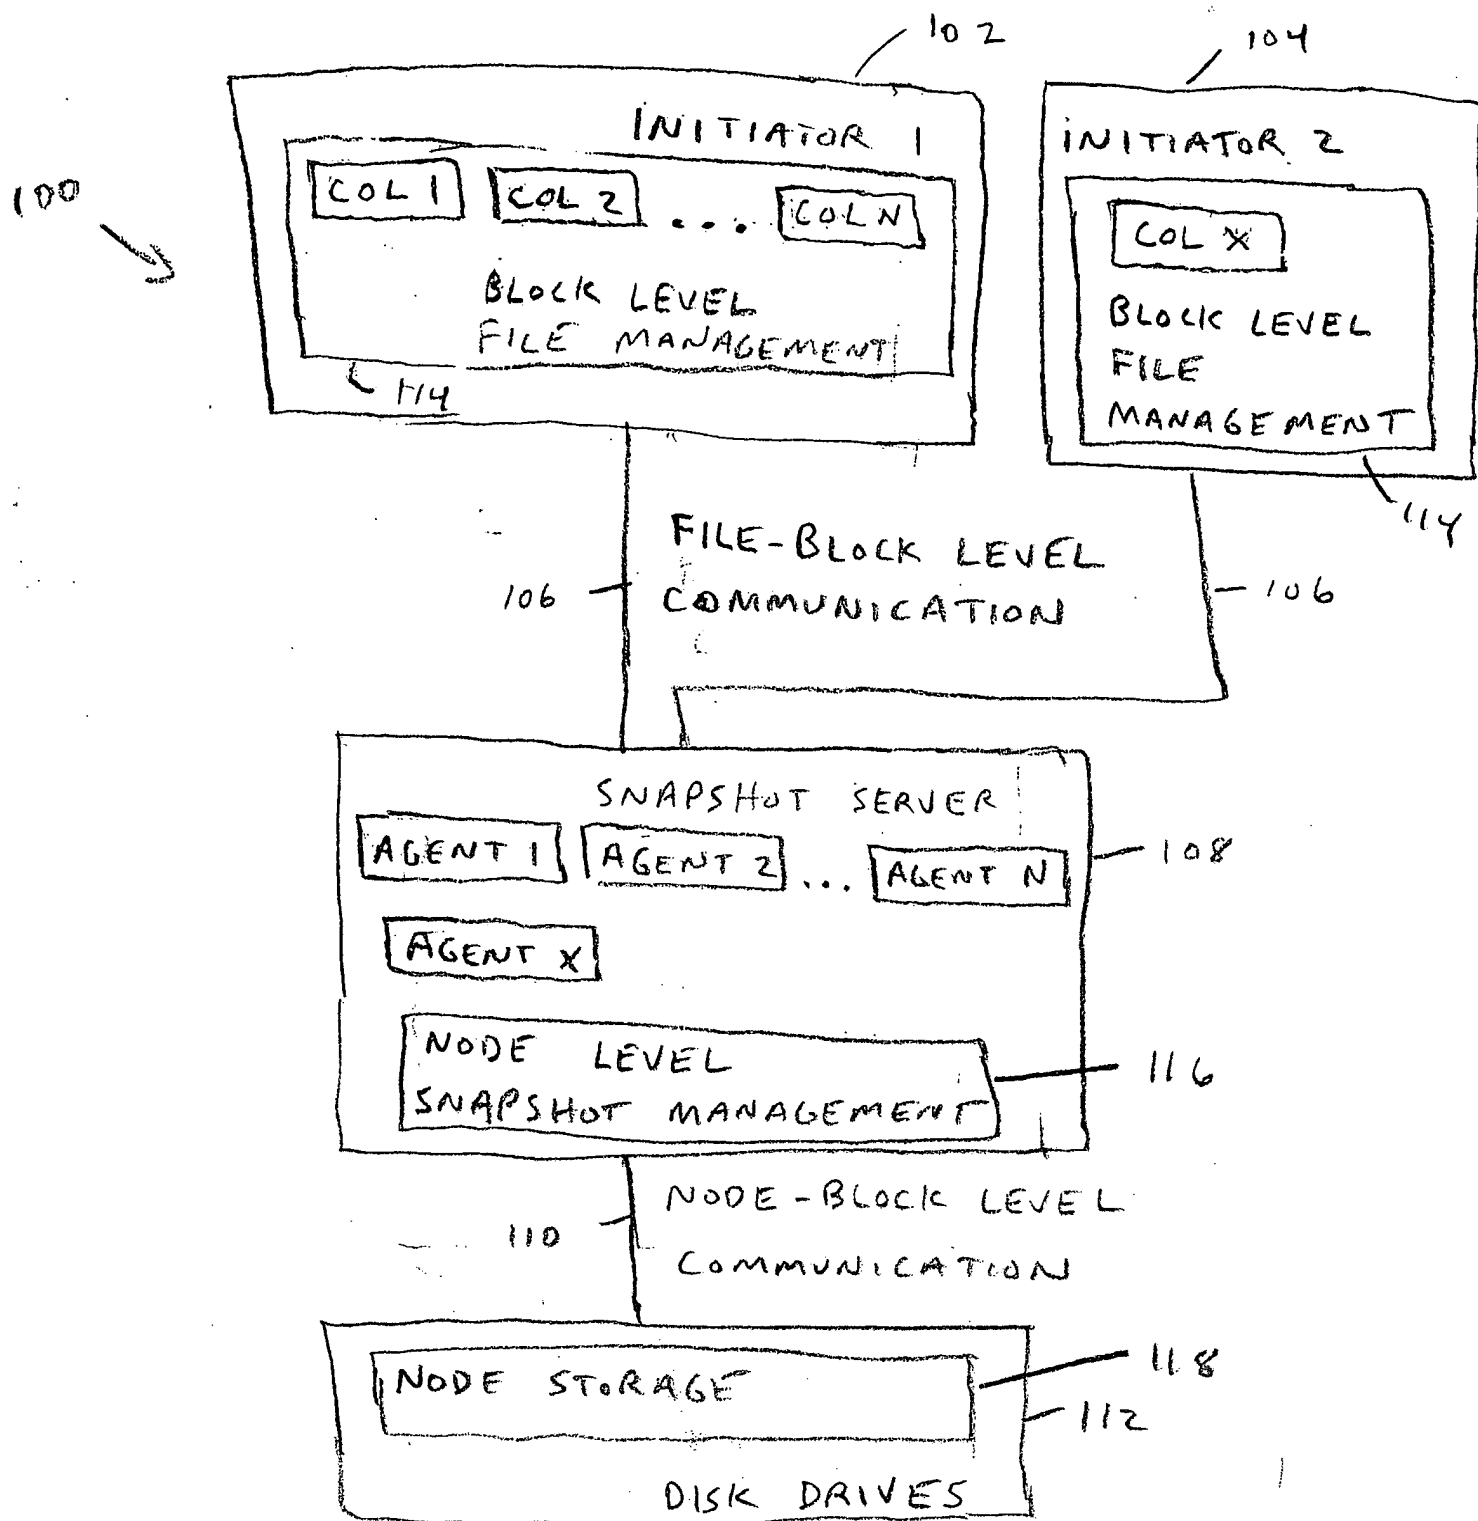 102
104
100
INITIATOR 1
COL 1 COL 2 ... COL N
BLOCK LEVEL
FILE MANAGEMENT
114
INITIATOR 2
COL X
BLOCK LEVEL
FILE
MANAGEMENT
114
FILE-BLOCK LEVEL
COMMUNICATION
106
106
SNAPSHOT SERVER
AGENT 1 AGENT 2 ... AGENT N
108
AGENT X
NODE LEVEL
SNAPSHOT MANAGEMENT
116
NODE-BLOCK LEVEL
COMMUNICATION
110
NODE STORAGE
118
112
DISK DRIVES